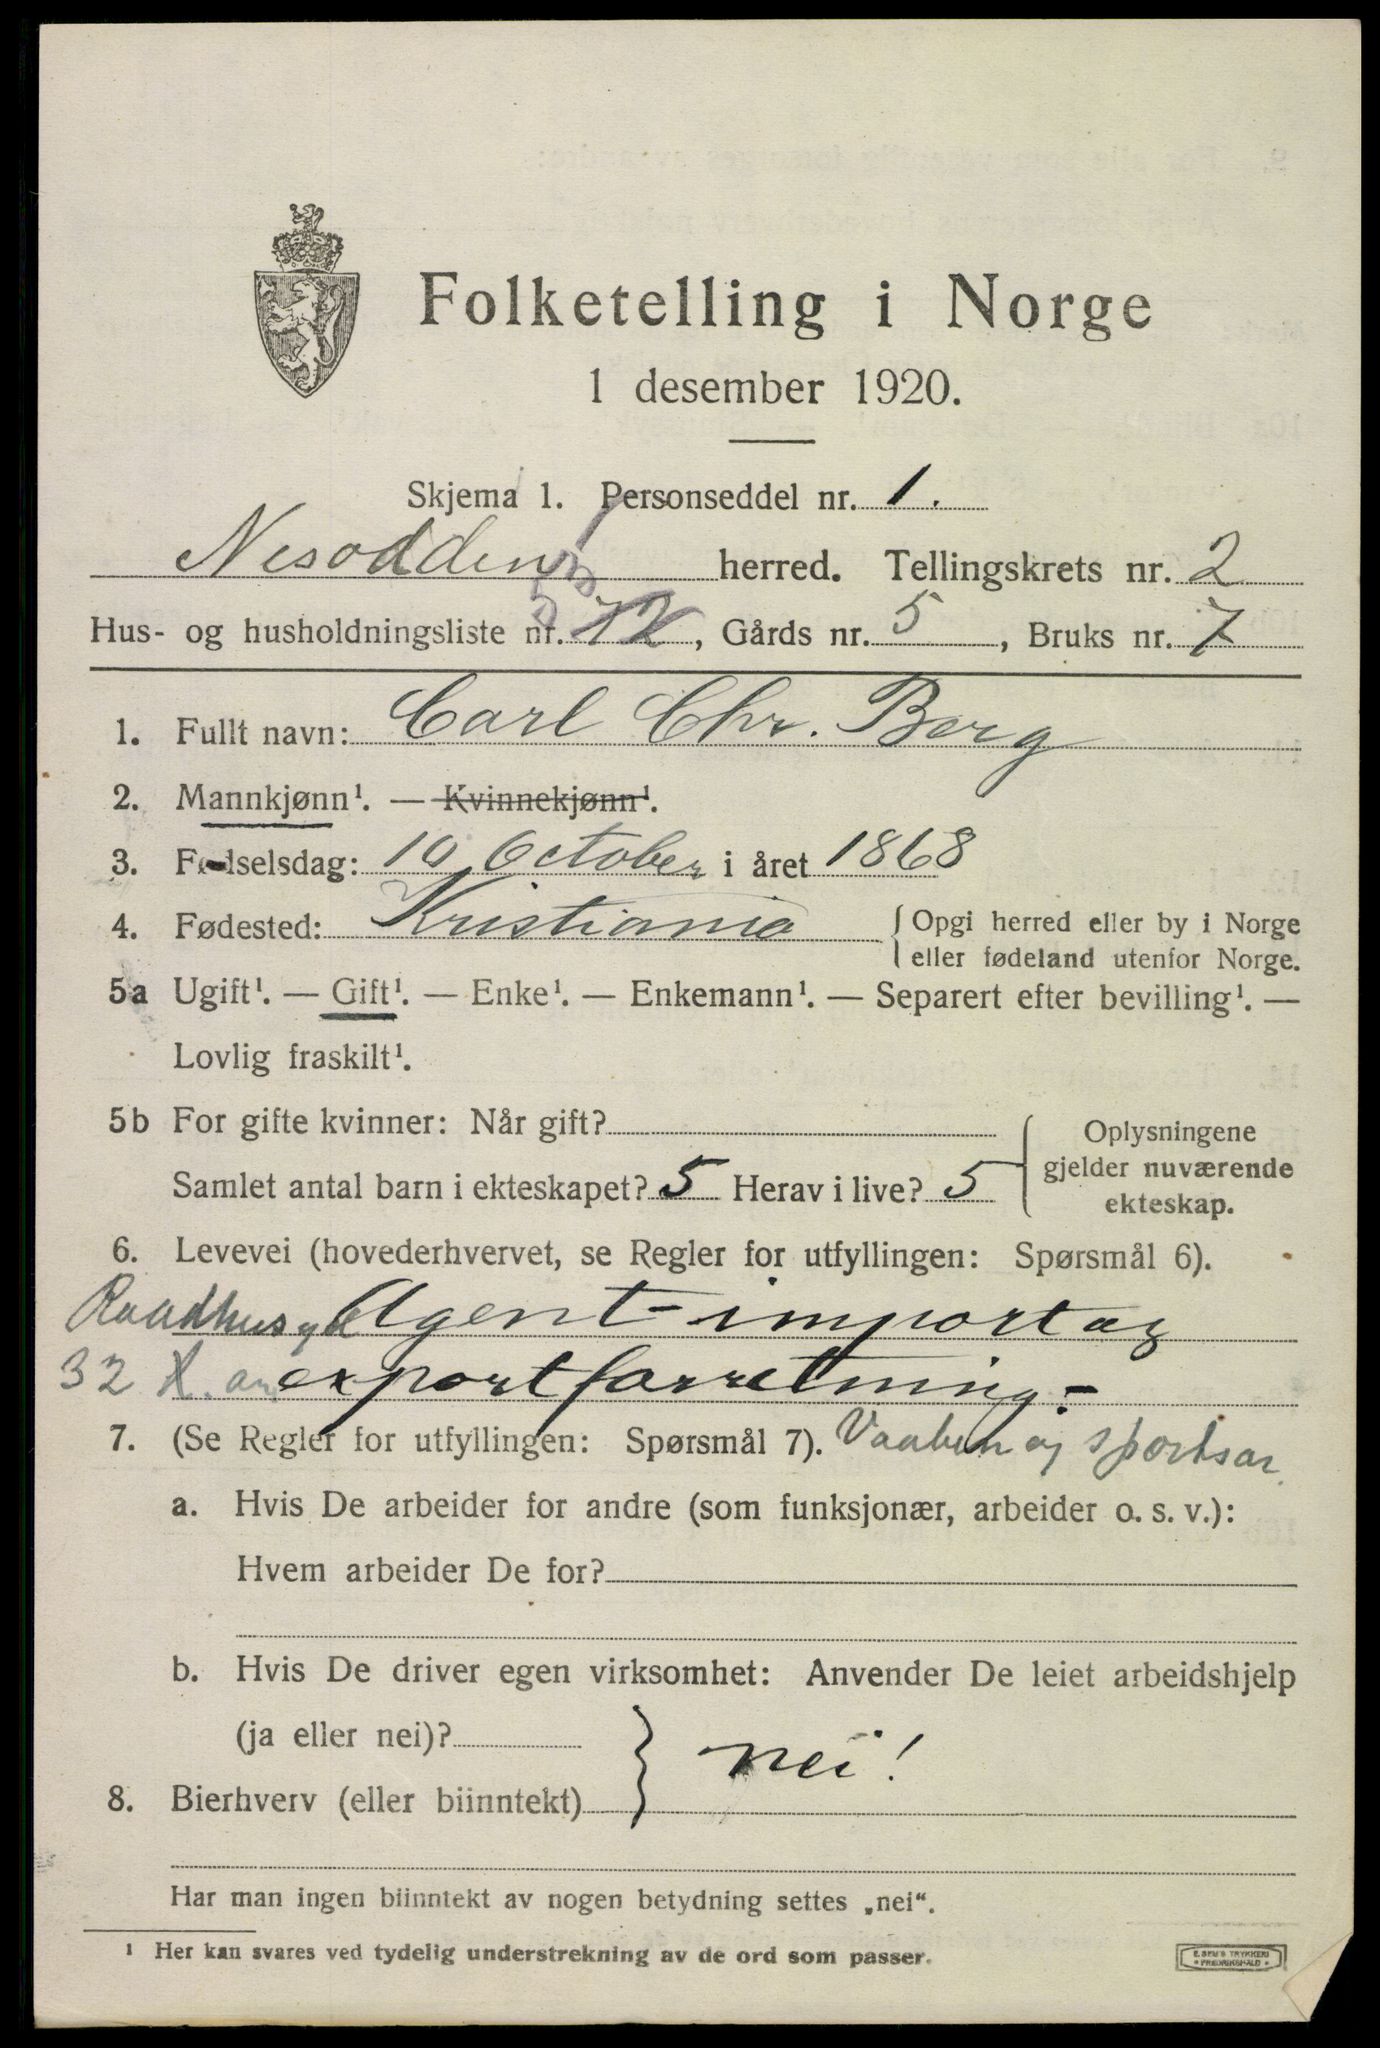 Folketelling i Norge
1 desember 1920.
Skjema 1. Personseddel nr. 1.
Nesodden herred. Tellingskrets nr. 2
Hus- og husholdningsliste nr. 12, Gårds nr. 5, Bruks nr. 7
1. Fullt navn: Carl Chr. Berg
2. Mannkjønn¹. — Kvinnekjønn¹.
3. Fødselsdag: 10 October i året 1868
4. Fødested: Kristiania { Opgi herred eller by i Norge
eller fødeland utenfor Norge.
5a Ugift¹. — Gift¹. — Enke¹. — Enkemann¹. — Separert efter bevilling¹. —
Lovlig fraskilt¹.
5b For gifte kvinner: Når gift?
Samlet antal barn i ekteskapet? 5 Herav i live? 5
Oplysningene
gjelder nuværende
ekteskap.
6. Levevei (hovederhvervet, se Regler for utfyllingen: Spørsmål 6).
Raadhusgt Agent- import og
32 K. an export forretning.-
7. (Se Regler for utfyllingen: Spørsmål 7). Vaaben og sportsar.
a. Hvis De arbeider for andre (som funksjonær, arbeider o. s. v.):
Hvem arbeider De for?
b. Hvis De driver egen virksomhet: Anvender De leiet arbeidshjelp
(ja eller nei)?
nei!
8. Bierhverv (eller biinntekt)
Har man ingen biinntekt av nogen betydning settes „nei“.
¹ Her kan svares ved tydelig understrekning av de ord som passer.
E. SEM'S TRYKKERI
* FREDRIKSHALD *